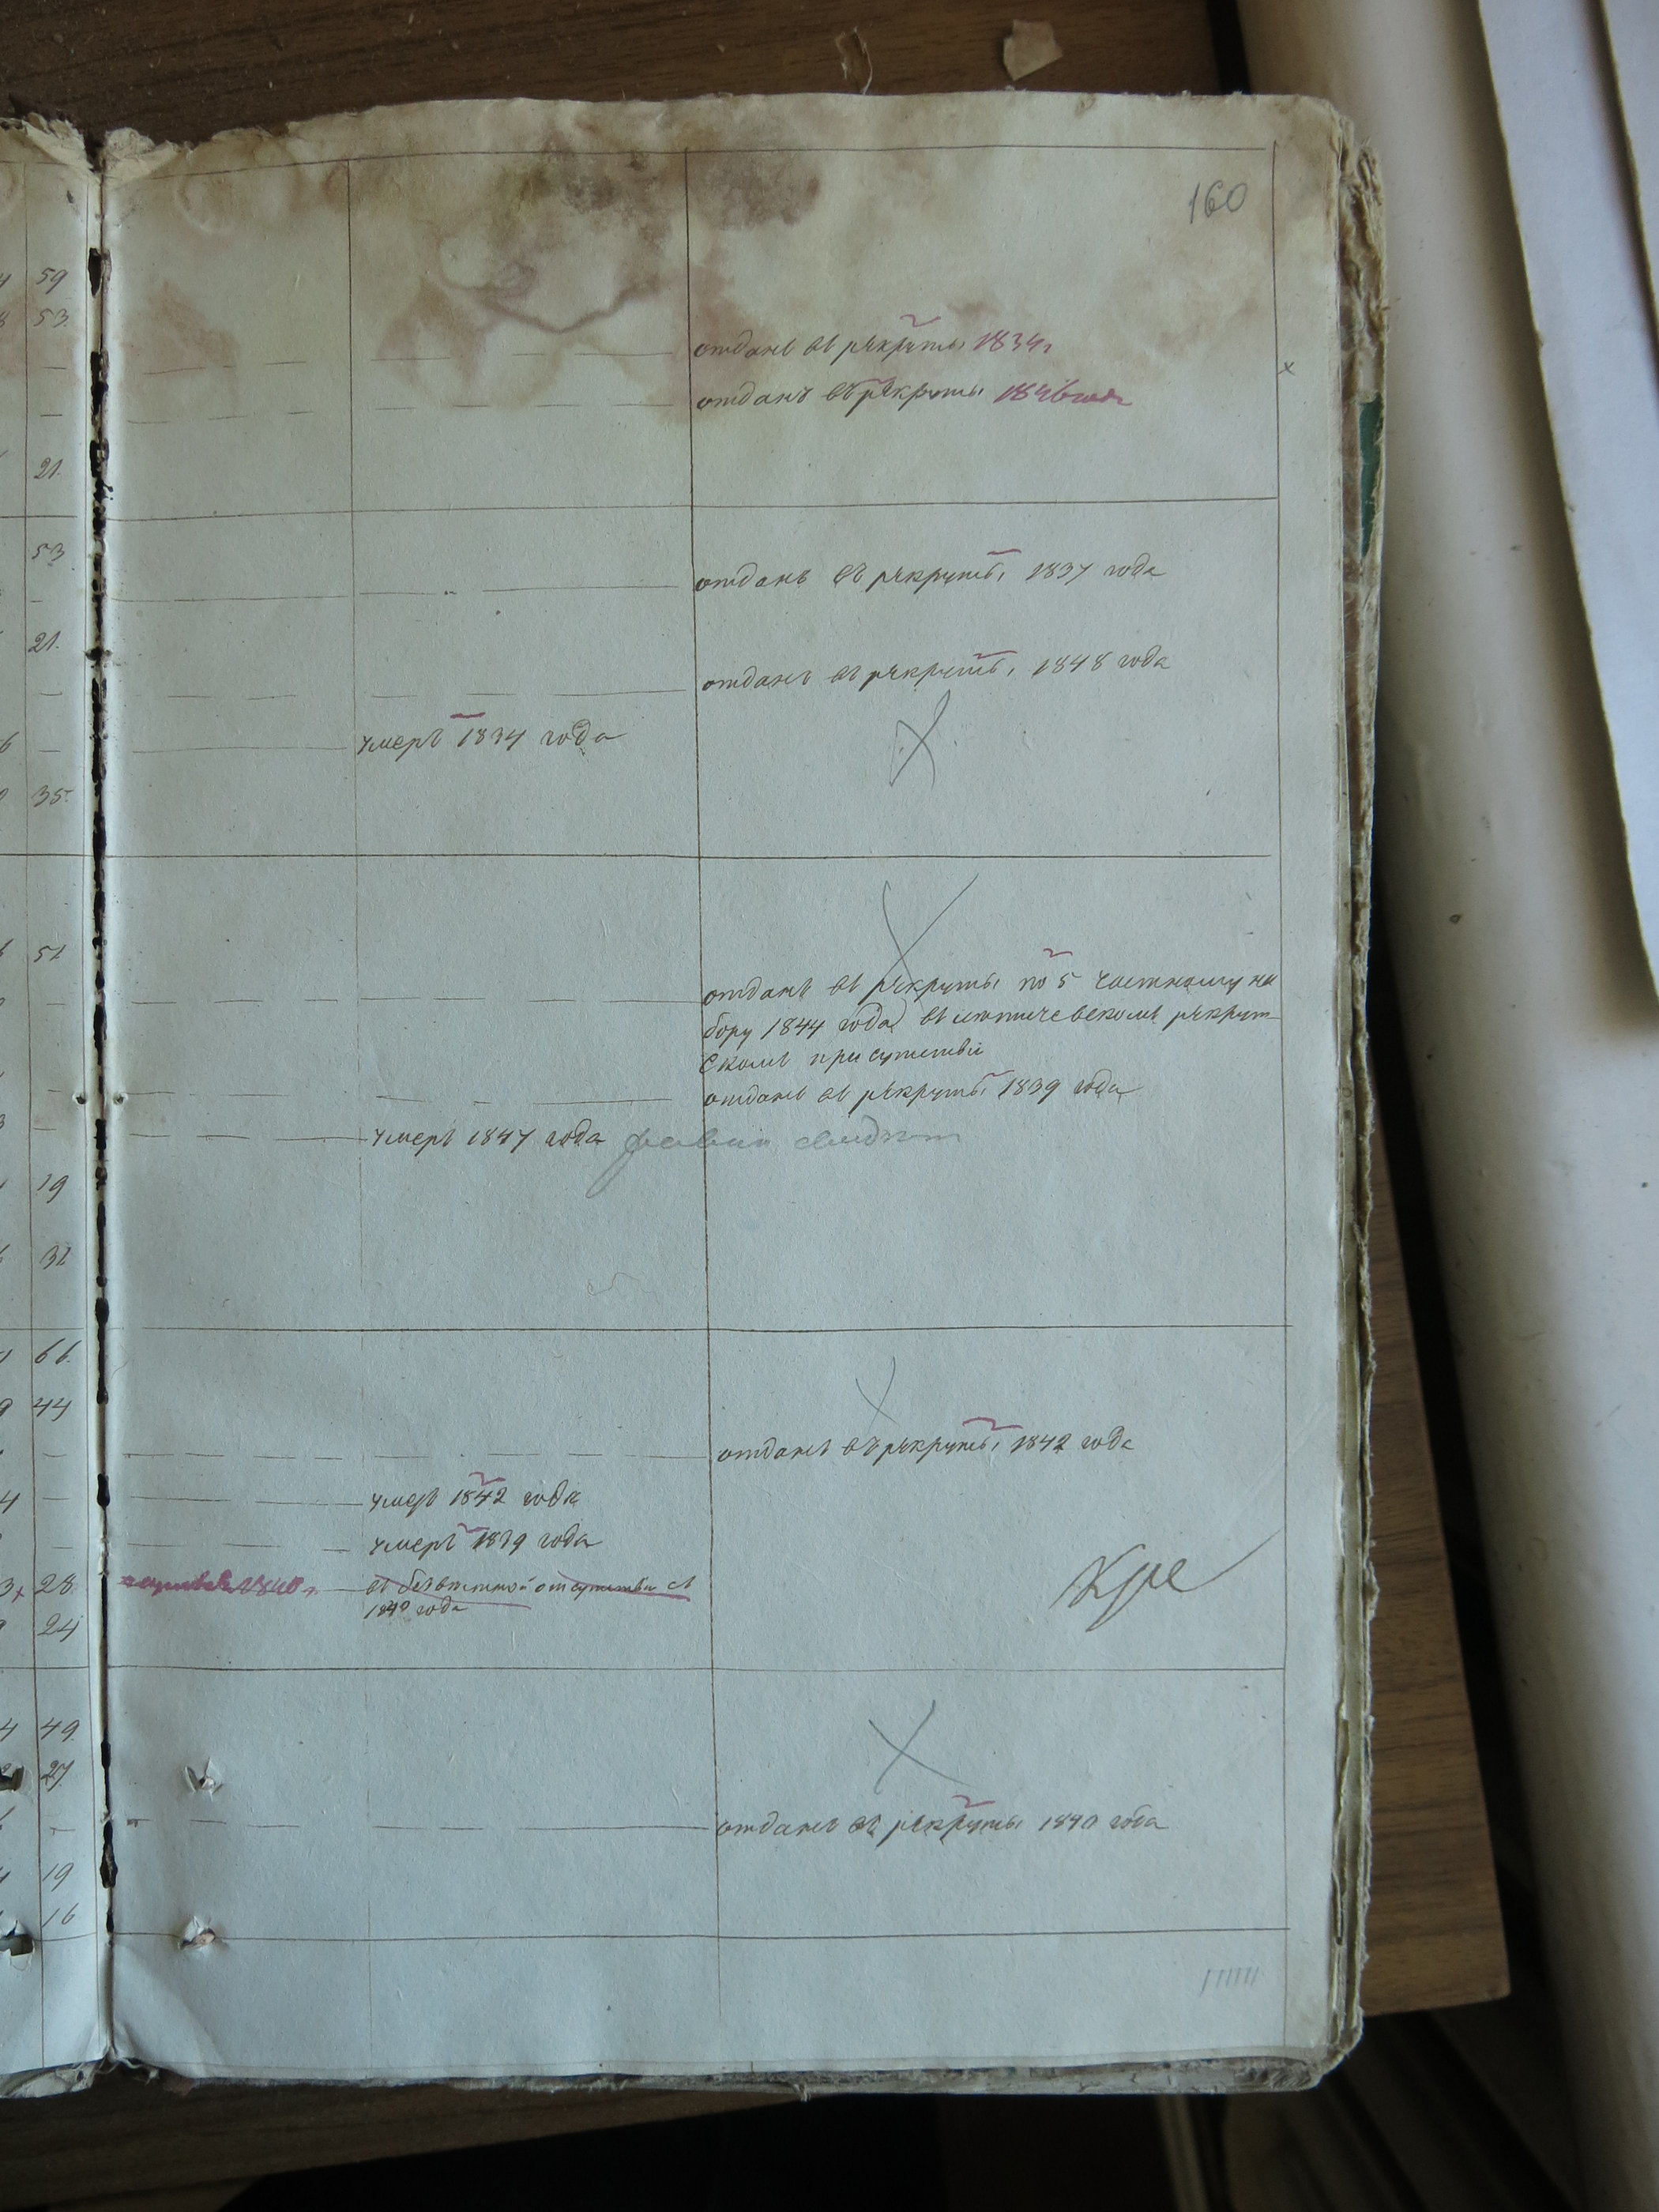 160
59
53.
отданъ въ рекруты 1834г
отданъ въ рекруты 1846 года
21.
53
отданъ въ рекруты 1837 года
21.
отданъ въ рекруты 1848 года
умеръ 1834 года
35
51
отданъ въ рекруты по 5 частному на
бору 1844 года въ рекрут
скомъ присутствіи
отданъ въ рекруты 1839 года
умеръ 1847 года
19
31
66.
44
отданъ въ рекруты 1842 года
4 —
умеръ 1842 года
умеръ 1839 года
3 х 28 1840 г. въ безвѣстной отсутствіи съ
1840 года
24
4 49.
27
отданъ въ рекруты 1840 года
19
16